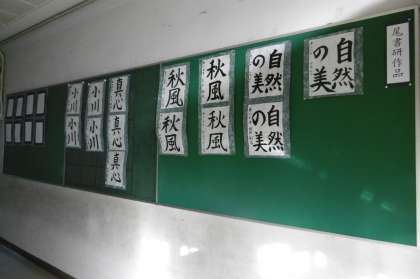 尾書研作品
自然
の美
自然
の美
自然
の美
秋風
秋風
秋風
秋風
真心
真心
真心
小川
小川
小川
小川